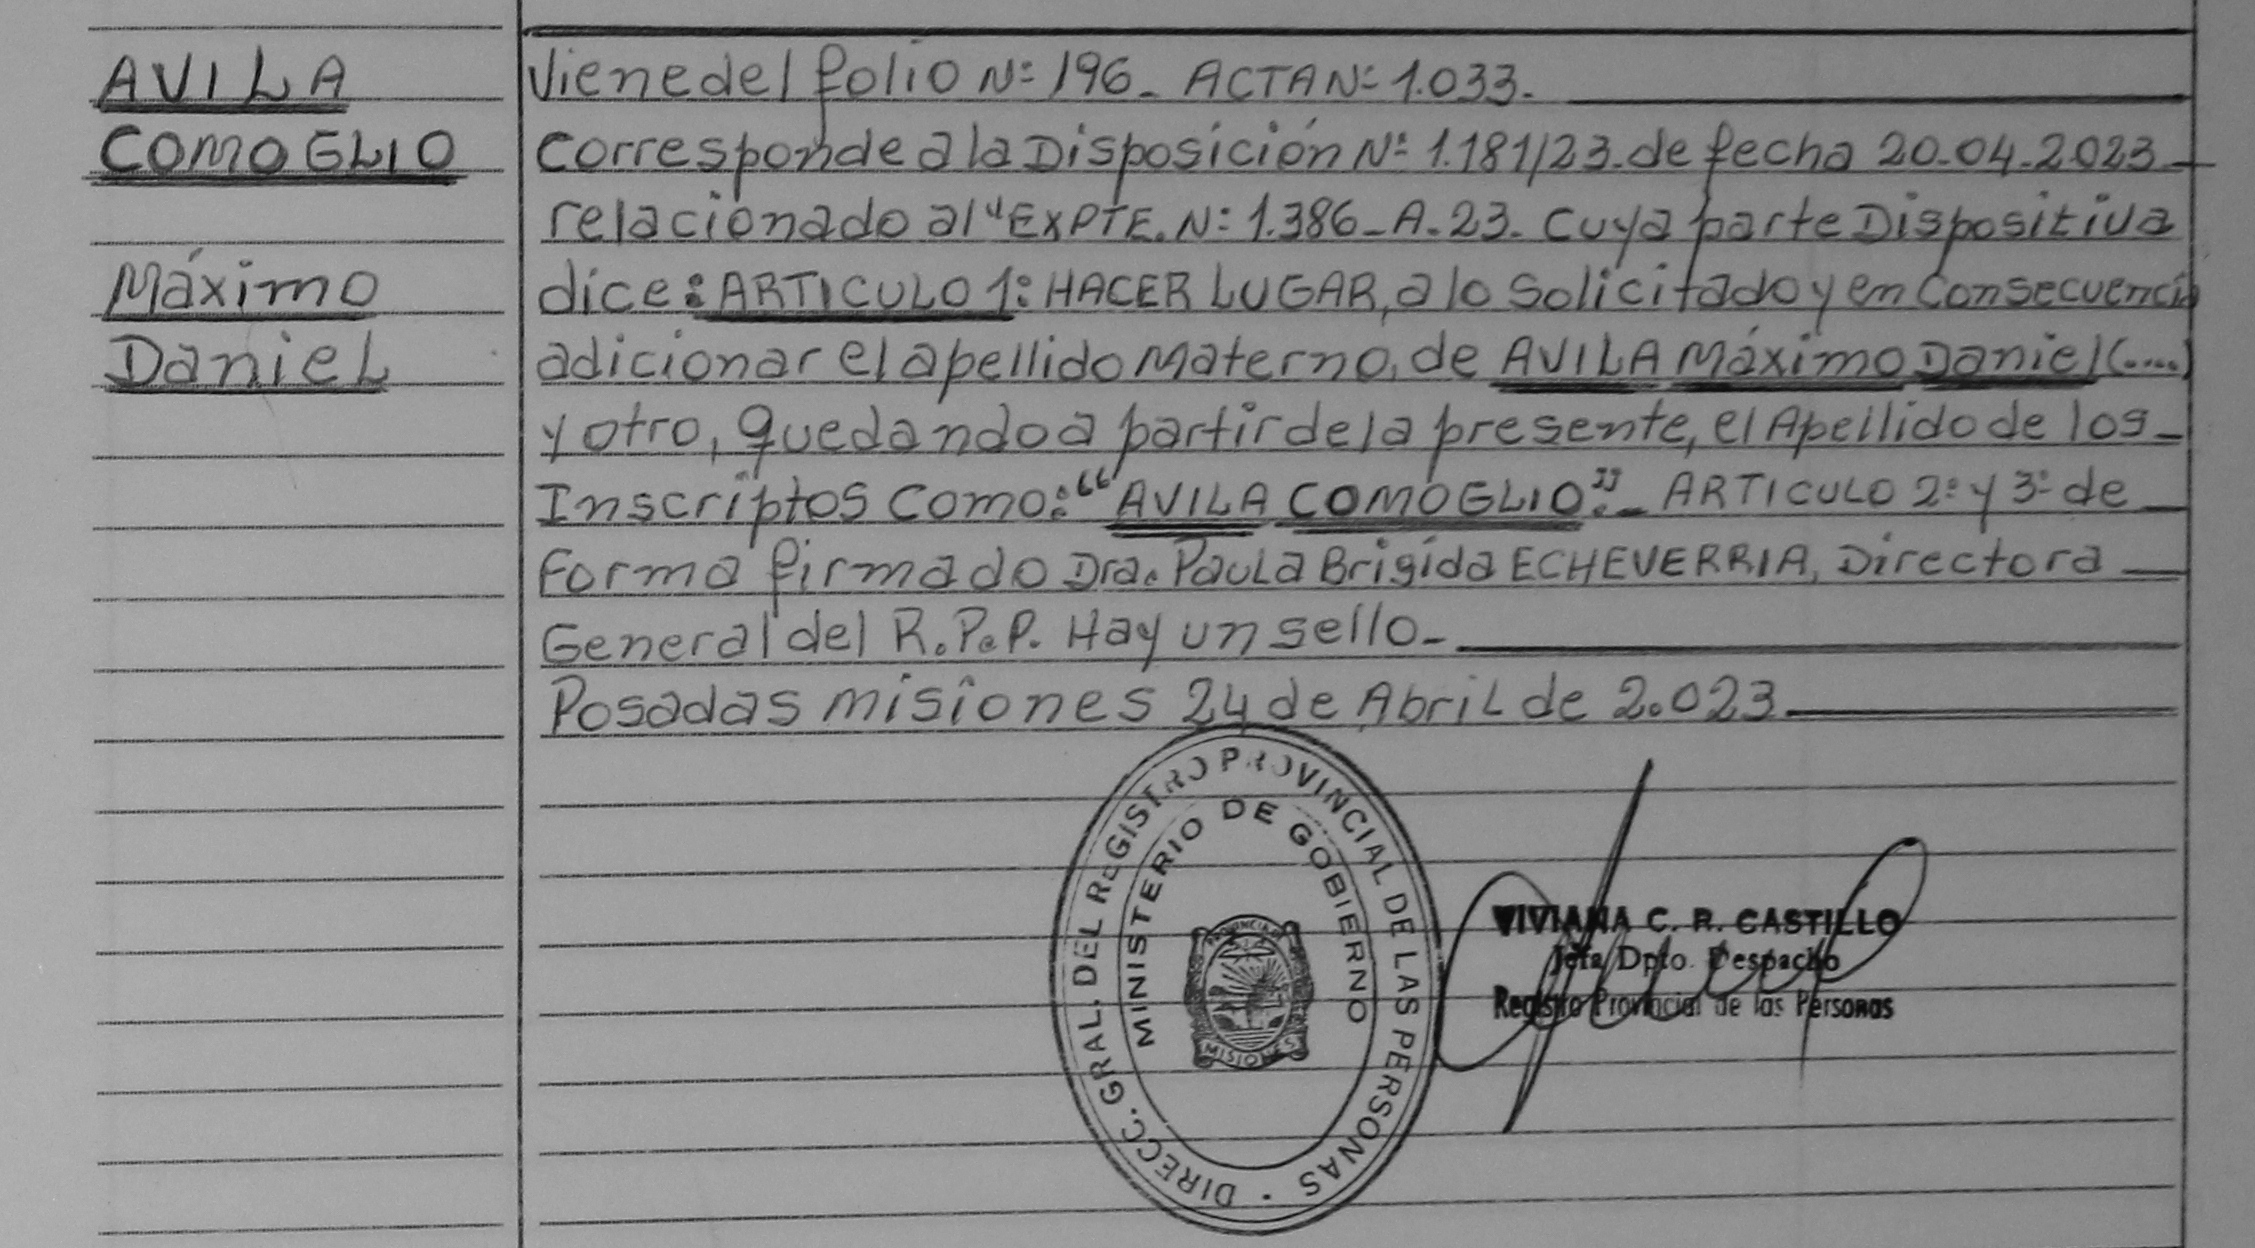 AVILA
COMOGLIO
Máximo
Daniel
Viene del folio Nº 196_ ACTA Nº 1.033._
Corresponde a la Disposición Nº 1.181/23. de fecha 20-04-2.023_
relacionado al "EXPTE. Nº 1.386_A-23. Cuya parte Dispositiva
dice: ARTICULO 1: HACER LUGAR, a lo Solicitado y en Consecuencia
adicionar el apellido Materno, de AVILA Máximo Daniel (....)
y otro, quedando a partir de la presente, el Apellido de los_
Inscriptos Como: "AVILA COMOGLIO"._ ARTICULO 2º y 3º de_
Forma firmado Dra. Paula Brigida ECHEVERRIA, Directora_
General del R.P.P. Hay un sello._
Posadas misiones 24 de Abril de 2.023_
DIRECC. GRAL. DEL REGISTRO PROVINCIAL DE LAS PERSONAS
MINISTERIO DE GOBIERNO
PROVINCIA DE
MISIONES
VIVIANA C. R. CASTILLO
Jefa Dpto. Despacho
Registro Provincial de las Personas